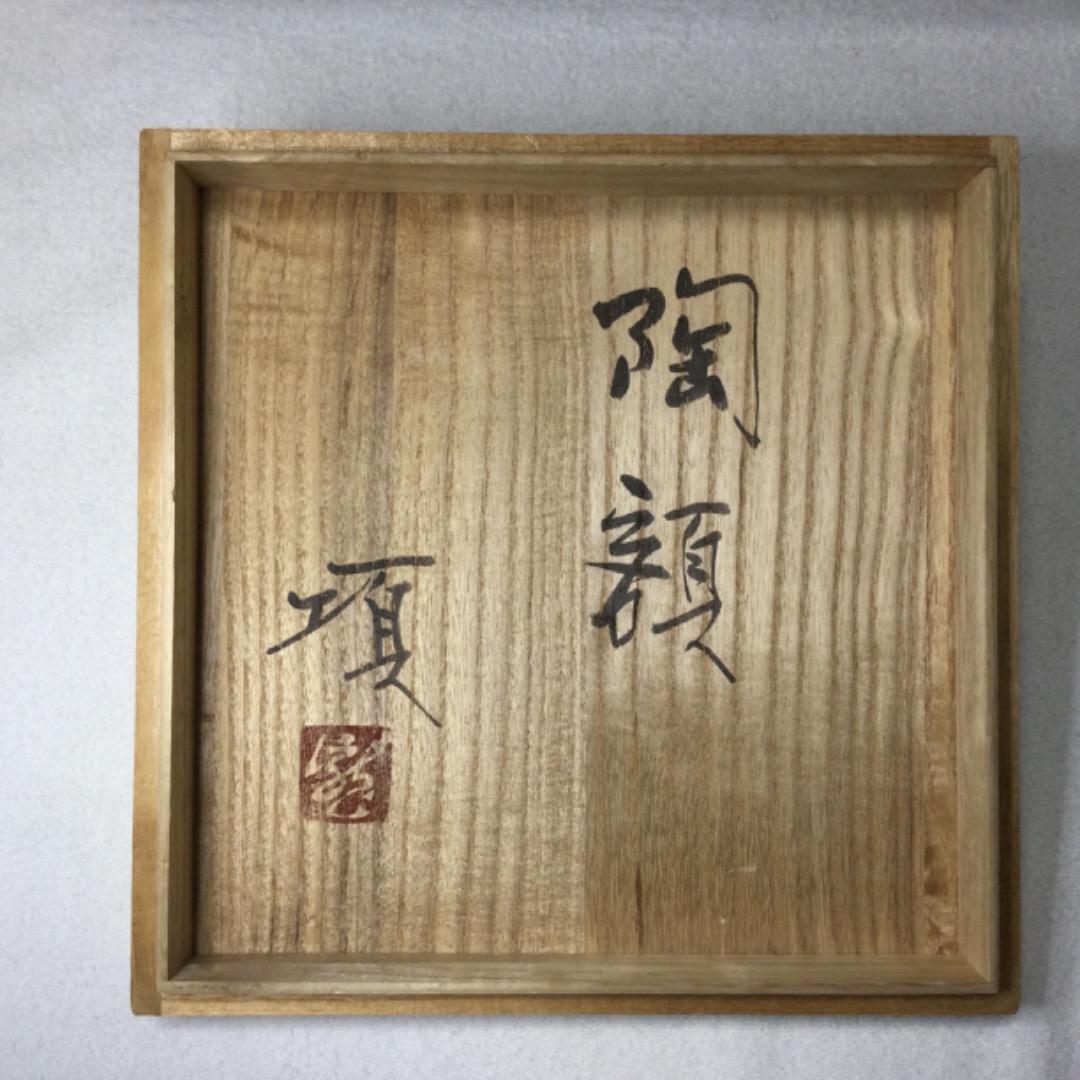 陶額
項